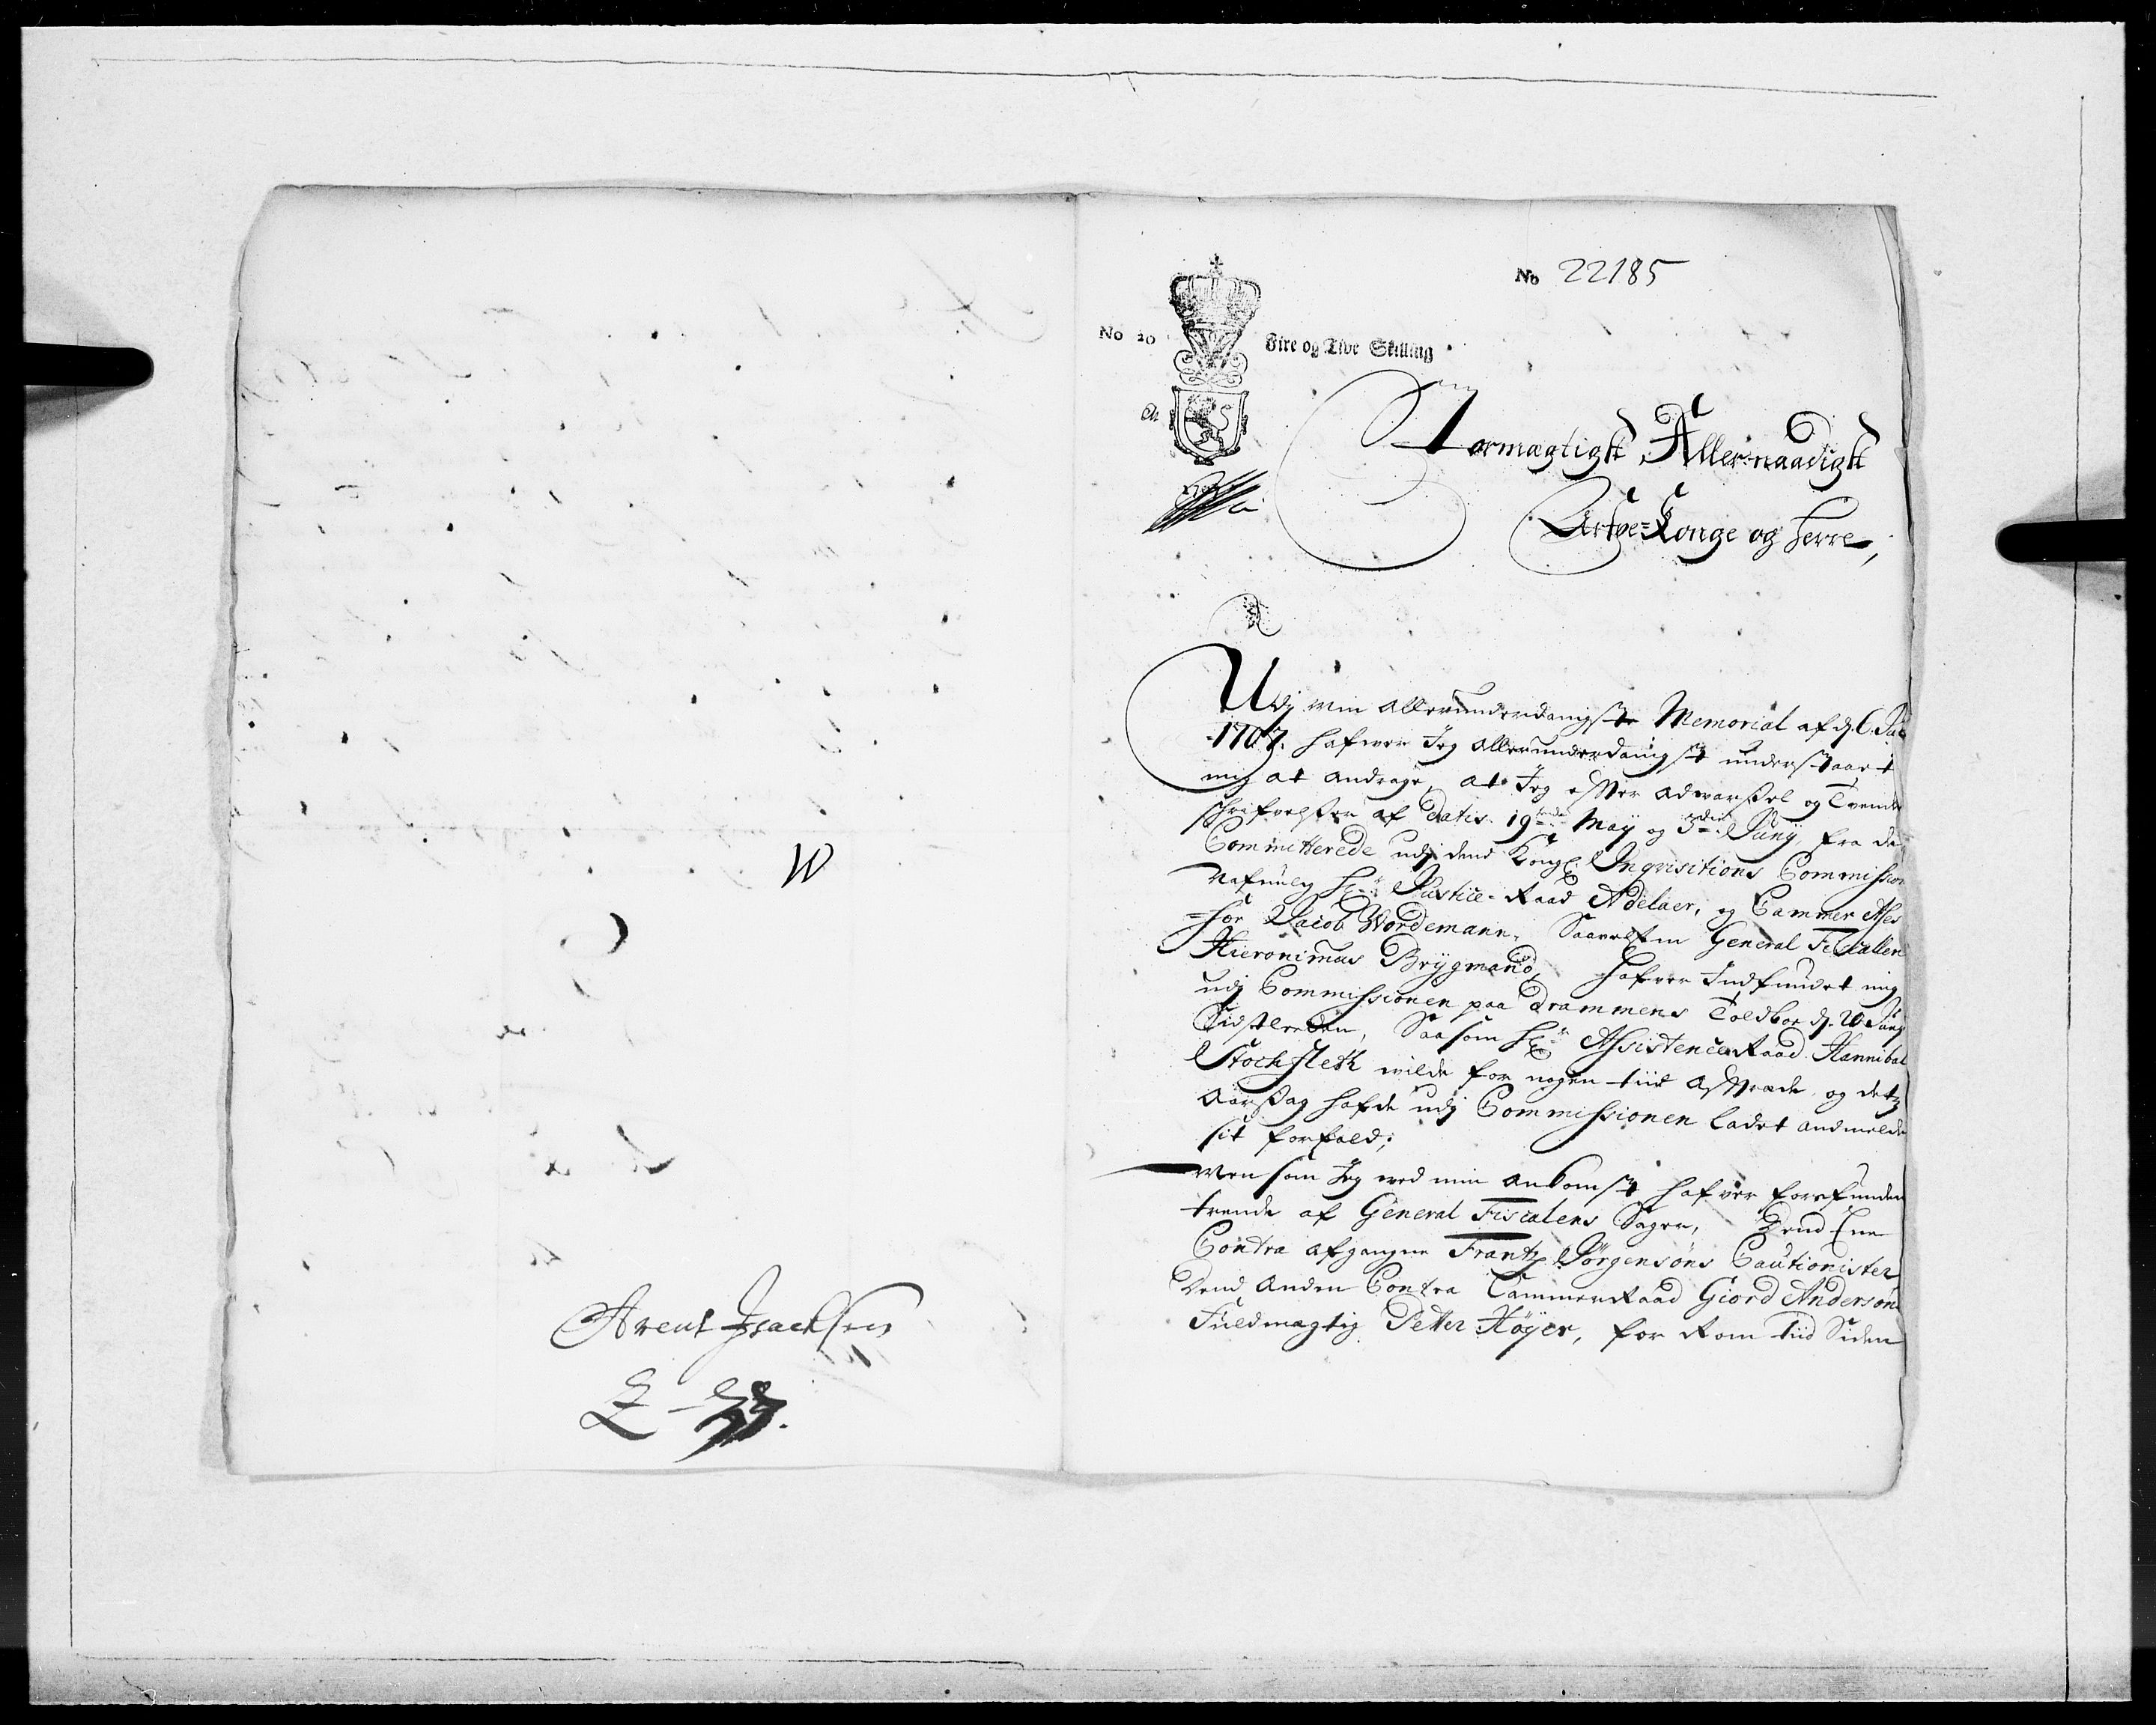 W
Arent Isachsen
No 22185
No 20
Fire og Tive Skilling
Stormægtigste Aller-naadigste
Arfve=Konge og Herre,
Udj min allerunderdanigste Memorial af dj. 6. Julij
1707. hafver Jeg allerunderdanigst understaaet
mig at andrage, at Jeg efter advarsel og Tvende
schrifvelser af Datis. 19de May og 3die Junij, fra de
Committerede udj dend Kongl. Inqvisitions Commission
Nafnlig Hr Justice-Raad Adelaer, og Cammer Asses
=sor Jacob Wordemann, Saavelsom General Fiscallen
Hieronimus Brygmand, hafver Indfundet mig
udj Commissionen paa Drammens Toldboe dj. 20 Junij
Sidstleeden, Saasom Hr Assistence Raad Hannibal
Stockfleth wilde for nogen tiid aftræde, og detz
Aarsag hafde udj Commissionen ladet andmelde
sit forfald;
Men som Jeg ved min ankomst hafver forefunden
tvende af General Fiscalens Sager, Dend Ene
Contra afgangne Frantz Jørgensøns Cautionister
Dend anden Contra CammerRaad Giord Andersøns
Fuldmægtig Petter Høyer, for Rom tiid Siden